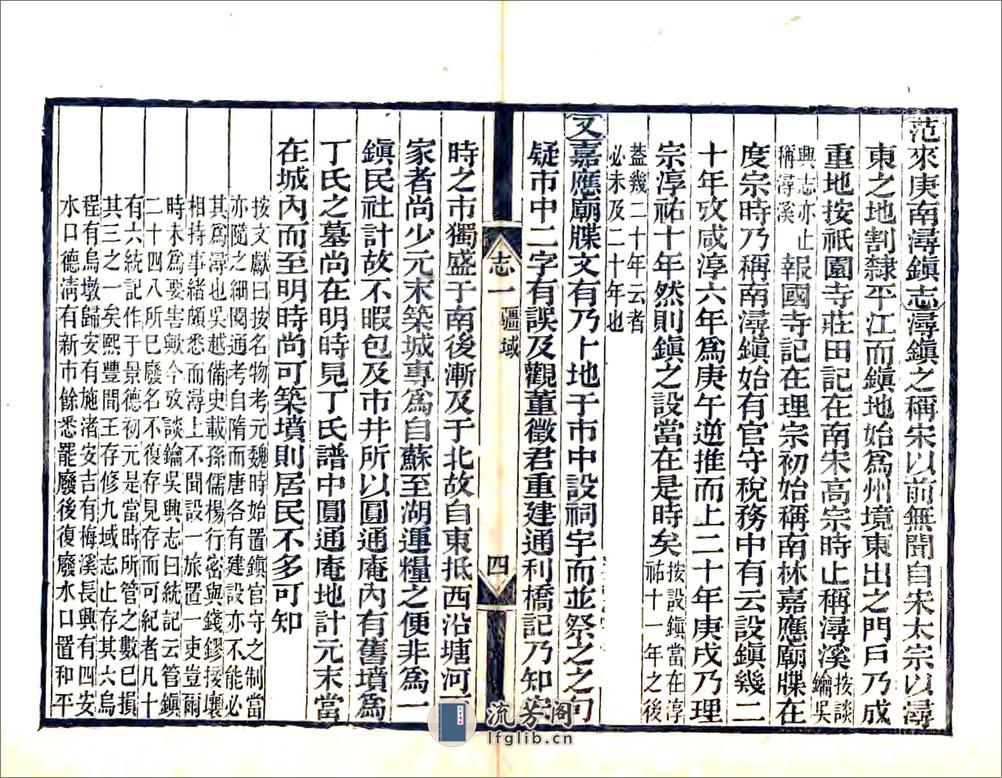 范來庚南潯鎮志潯鎮之稱宋以前無聞自宋太宗以潯
東之地割隸平江而鎮地始爲州境東出之門戶乃成
重地按祇園寺莊田記在南宋高宗時止稱潯溪按談鑰吳
興志亦止稱潯溪報國寺記在理宗初始稱南林嘉應廟牒在
度宗時乃稱南潯鎮始有官守稅務中有云設鎮幾二
十年攷咸淳六年爲庚午逆推而上二十年庚戌乃理
宗淳祐十年然則鎮之設當在是時矣按設鎮當在淳祐十一年之後
蓋幾二十年云者必未及二十年也
又嘉應廟牒文有乃卜地于市中設祠宇而並祭之之句
疑市中二字有誤及觀董徵君重建通利橋記乃知宋
志一
疆域
四
時之市獨盛于南後漸及于北故自東抵西沿塘河一
家者尚少元末築城專爲自蘇至湖運糧之便非爲一
鎮民社計故不暇包及市井所以圓通庵內有舊墳爲
丁氏之墓尚在明時見丁氏譜中圓通庵地計元末當
在城內而至明時尚可築墳則居民不多可知
按文獻曰按名物考元魏時始置鎮官守之制當
亦隨之細閱通考自隋而唐各有建設亦不能必
其爲潯也吳越備史載孫儒楊行密與錢鏐接壤
相持事緒頗悉而潯上不聞設一旅置一吏豈爾
時未爲要害歟今攷談鑰吳興志曰統記云管鎮
二十四八所已廢名不復存見存而可紀者凡十
有六統記作于景德初元是當時所管之數已損
其三之一矣熙豐間王存修九域志止存其六烏
程有烏墩歸安有施渚安吉有梅溪長興有四安
水口德清有新市餘悉罷廢後復廢水口置和平
流芳閣
lfglib.cn